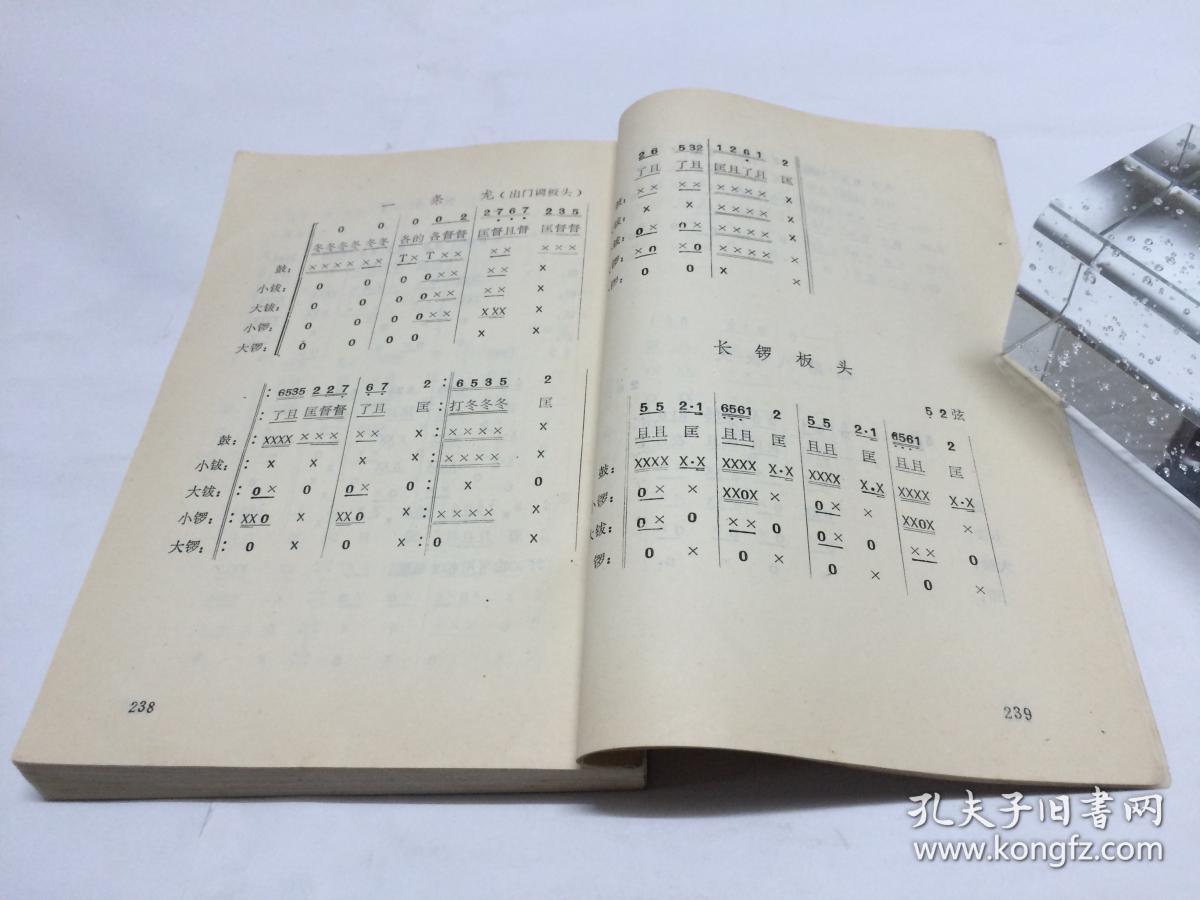 一 条 龙(出门调板头)
0 0 0 0 2 2 7 6 7 2 3 5
冬冬冬冬 冬冬 各的 各督督 匡督且督 匡督督
鼓: ×××× ×× T× T×× ×× ×××
小钹: 0 0 0 0×× ×× ×
大钹: 0 0 0 0×× ×× ×
小锣: 0 0 0 0×× XXX
大锣: 0 0 0 0 × ×
: 6535 2 2 7 6 7 2 : 6 5 3 5 2
: 了且 匡督督 了且 匡 : 打冬冬冬 匡
鼓: : XXXX ××× ×× × : ×××× ×
小钹: : × × × × : ×××× ×
大钹: : 0× 0 0× 0 : × 0
小锣: : XX0 × XX0 × : ×××× ×
大锣: : 0 × 0 × : 0 ×
238
2 6 5 3 2 1 2 6 1 2
了且 了且 匡且了且 匡
×× ×× ×××× ×
× × ×××× ×
0× 0× ×××× ×
×0 ×0 ×××× ×
0 0 × ×
长 锣 板 头
5 2 弦
5 5 2·1 6561 2 5 5 2·1 6561 2
且且 匡 且且 匡 且且 匡 且且 匡
鼓: XXXX X·X XXXX X·X XXXX X·X XXXX X·X
锣: 0× × XX0X × 0× × XX0X ×
钹: 0× 0 ×× 0 0× 0 ×× 0
锣: 0 × 0 × 0 × 0 ×
239
孔夫子旧书网
www.kongfz.com